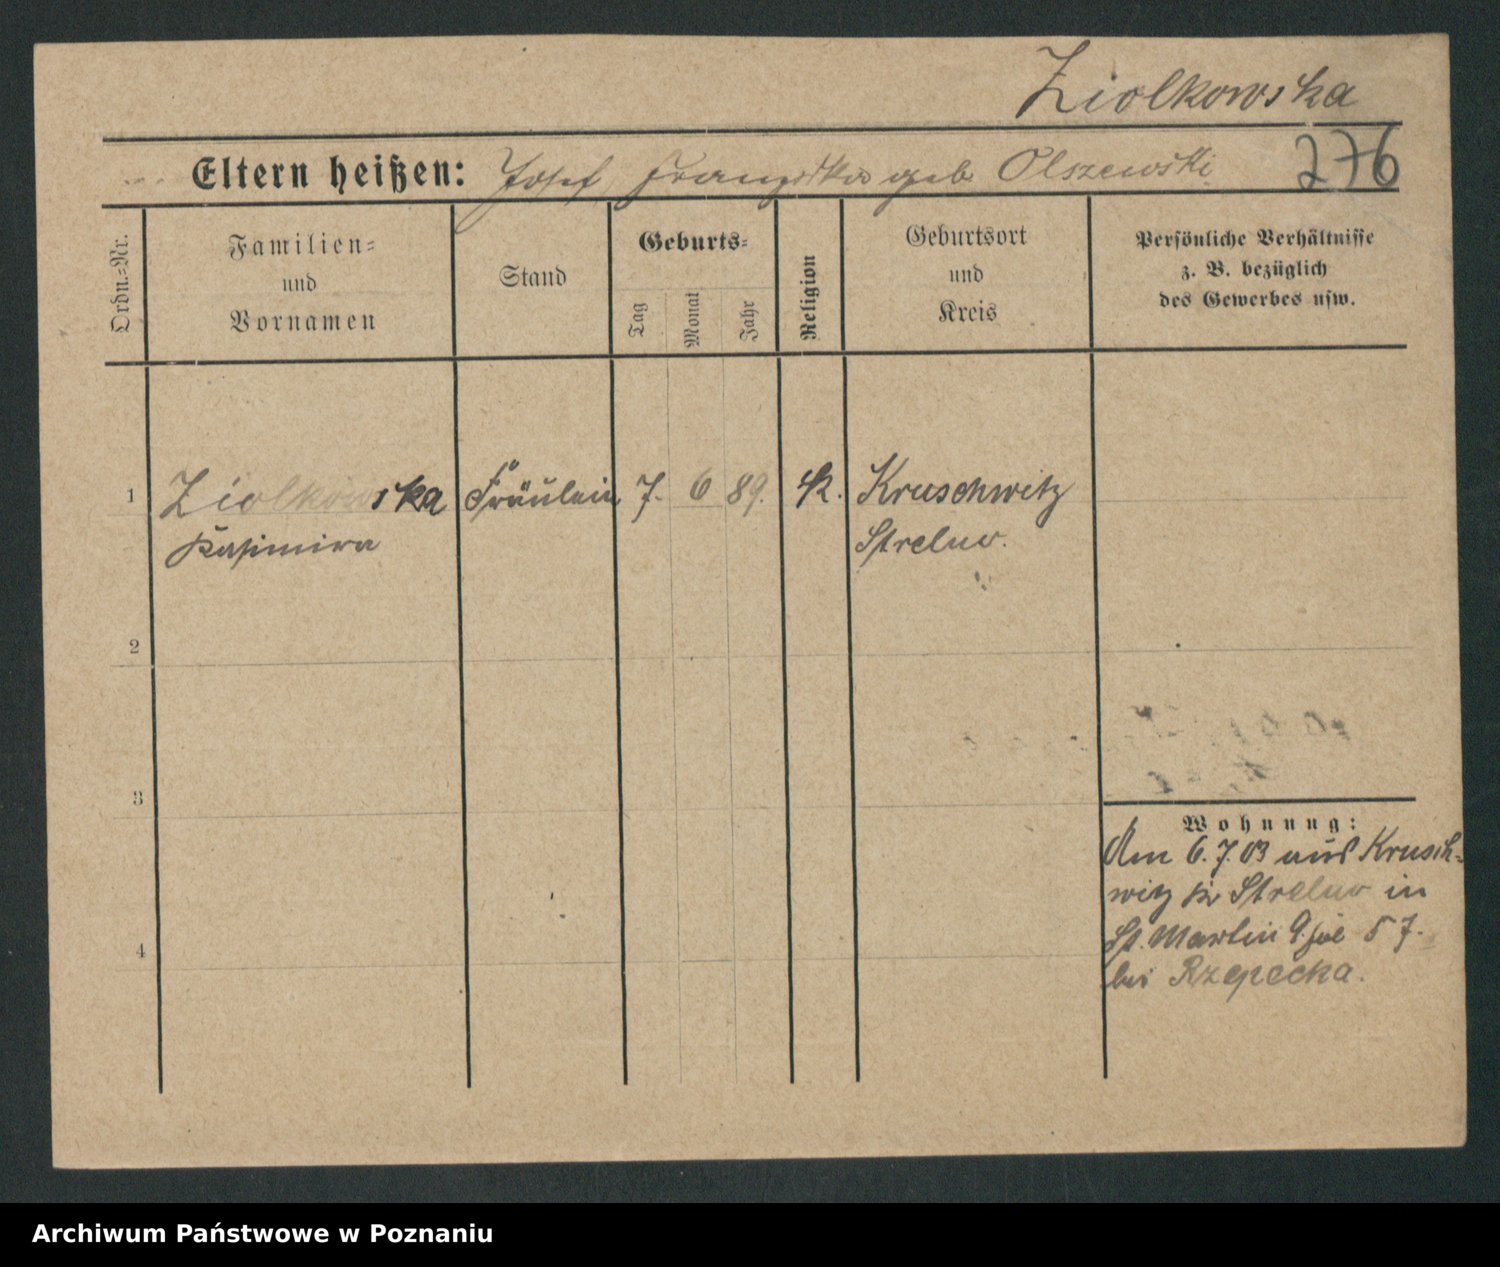 Ziolkowska
Eltern heißen: Josef, Franziska geb Olszewski
276
Ordn.-Nr.
Familien-
und
Vornamen
Stand
Geburts-
Tag
Monat
Jahr
Religion
Geburtsort
und
Kreis
Persönliche Verhältnisse
z. B. bezüglich
des Gewerbes usw.
1 Ziolkowska Fräulein 7. 6 89. K. Kruschwitz
Kasimira Strelno.
2
3
Wohnung:
Am 6.7.03 aus Krusch-
witz Kr Strelno in
St. Martin 57.
4
bei Rzepecka.
Archiwum Państwowe w Poznaniu